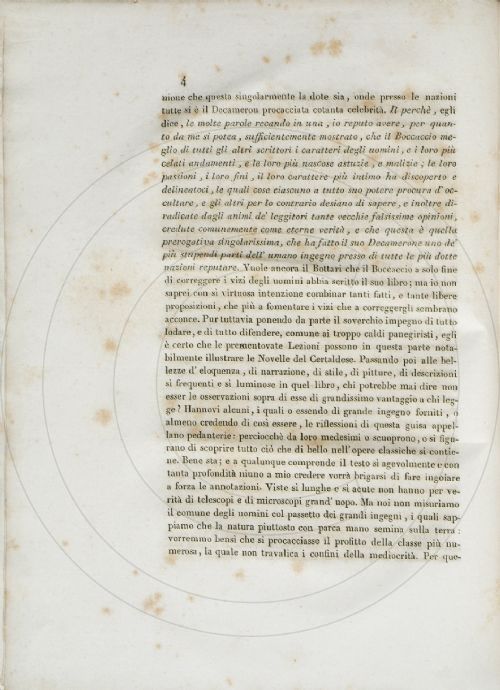 4
nione che questa singolarmente la dote sia, onde presso le nazioni
tutte si è il Decameron procacciata cotanta celebrità. Il perchè, egli
dice, le molte parole recando in una, io reputo avere, per quan-
to da me si potea, sufficientemente mostrato, che il Boccaccio me-
glio di tutti gli altri scrittori i caratteri degli uomini, e i loro più
celati andamenti, e le loro più nascose astuzie, e malizie; le loro
passioni, i loro fini, il loro carattere più intimo ha discoperto e
delineatoci, le quali cose ciascuno a tutto suo potere procura d'oc-
cultare, e gli altri per lo contrario desiano di sapere, e inoltre di-
radicate dagli animi de' leggitori tante vecchie falsissime opinioni,
credute comunemente come eterne verità, e che questa è quella
prerogativa singolarissima, che ha fatto il suo Decamerone uno de'
più stupendi parti dell' umano ingegno presso di tutte le più dotte
nazioni reputare. Vuole ancora il Bottari che il Boccaccio a solo fine
di correggere i vizi degli uomini abbia scritto il suo libro; ma io non
saprei con sì virtuosa intenzione combinar tanti fatti, e tante libere
proposizioni, che più a fomentare i vizi che a correggergli sembrano
acconce. Pur tuttavia ponendo da parte il soverchio impegno di tutto
lodare, e di tutto difendere, comune ai troppo caldi panegiristi, egli
è certo che le prementovate Lezioni possono in questa parte nota-
bilmente illustrare le Novelle del Certaldese. Passando poi alle bel-
lezze d' eloquenza, di narrazione, di stile, di pitture, di descrizioni
sì frequenti e sì luminose in quel libro, chi potrebbe mai dire non
esser le osservazioni sopra di esse di grandissimo vantaggio a chi leg-
ge? Hannovi alcuni, i quali o essendo di grande ingegno forniti, o
almeno credendo di così essere, le riflessioni di questa guisa appel-
lano pedanterie: perciocchè da loro medesimi o scuoprono, o si figu-
rano di scoprire tutto ciò che di bello nell'opere classiche si contie-
ne. Bene sta; e a qualunque comprende il testo sì agevolmente e con
tanta profondità niuno a mio credere vorrà brigarsi di fare ingoiare
a forza le annotazioni. Viste sì lunghe e sì acute non hanno per ve-
rità di telescopi e di microscopi grand' uopo. Ma noi non misuriamo
il comune degli uomini col passetto dei grandi ingegni, i quali sap-
piamo che la natura piuttosto con parca mano semina sulla terra:
vorremmo bensì che si procacciasse il profitto della classe più nu-
merosa, la quale non travalica i confini della mediocrità. Per que-